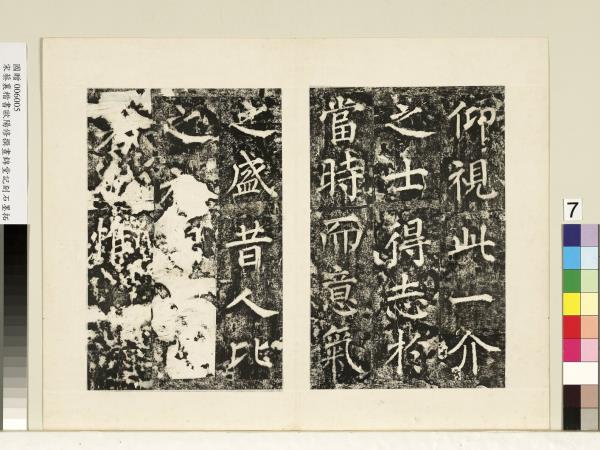 仰視此一介
之士得志於
當時而意氣
之盛昔人比
之
惟
國贈 006005
宋蔡襄楷書歐陽修撰晝錦堂記刻石墨拓
7